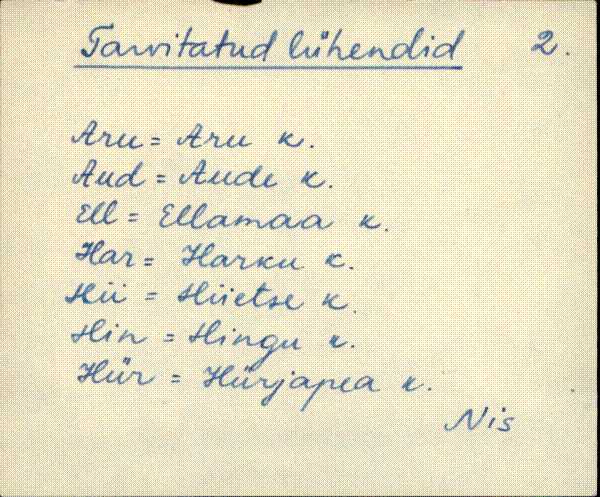 Tarvitatud lühendid 2.
Aru = Aru k.
Aud = Aude k.
Ell = Ellamaa k.
Har = Harku k.
Hü = Hüetse k.
Hin = Hingu k.
Hür = Hürjapea k.
Nis